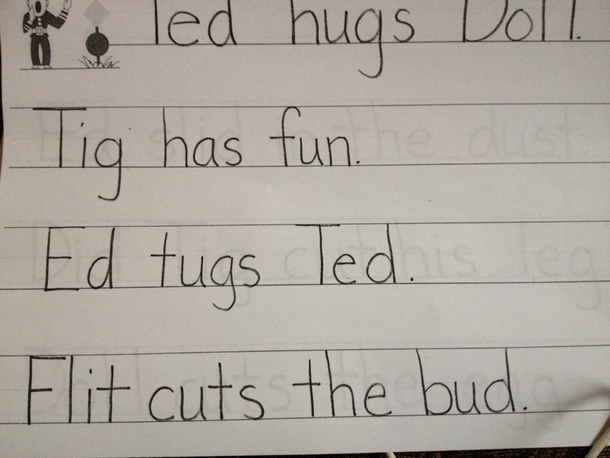 Ted hugs Doll.
Tig has fun.
Ed tugs Ted.
Flit cuts the bud.